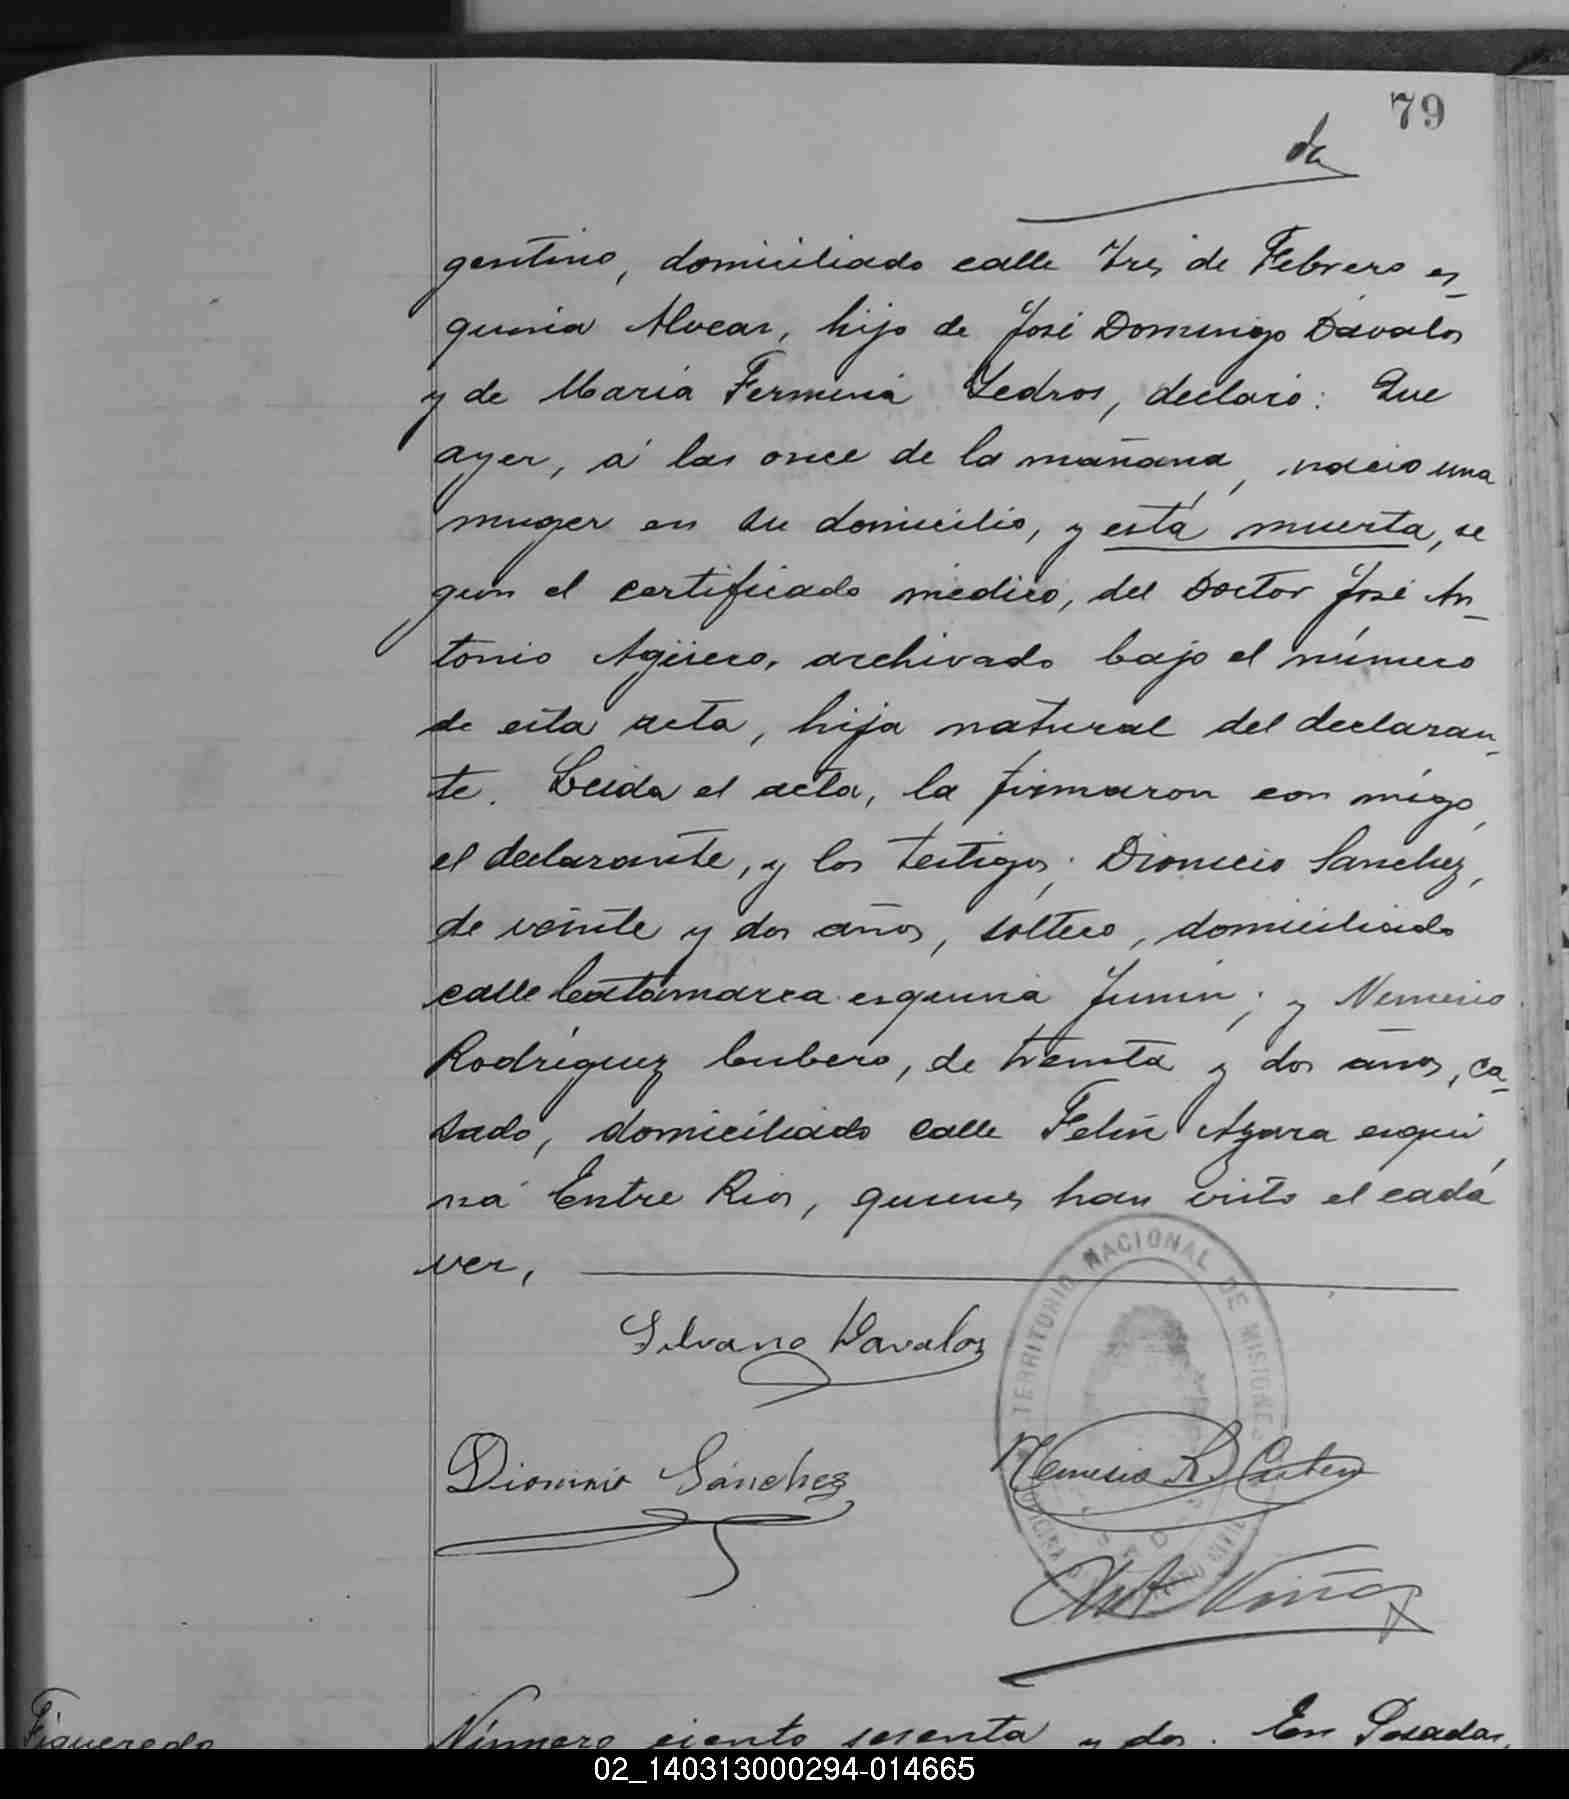 79
gentino, domiciliado calle Tres de Febrero es-
quina Alvear, hijo de José Domingo Dávalos
y de María Fermina Ledros, declaró: Que
ayer, á las once de la mañana, nació una
muger en su domicilio, y está muerta, se
gun el certificado médico, del Doctor José An-
tonio Agüero, archivado bajo el número
de esta acta, hija natural del declaran-
te. Leida el acta, la firmaron con migo,
el declarante, y los testigos; Dionicio Sanchez,
de veinte y dos años, soltero, domiciliado
calle Catamarca esquina Junín; y Nemesio
Rodríguez Cubero, de treinta y dos años, ca-
sado, domiciliado calle Felix Azara esqui
na Entre Rios, quienes han visto el cadá
ver,
Silvano Davalos
TERRITORIO NACIONAL DE MISIONES
Dionisio Sánchez
Nemesio R. Cubero
Figueredo
Número ciento sesenta y dos. En Posadas,
02_140313000294-014665